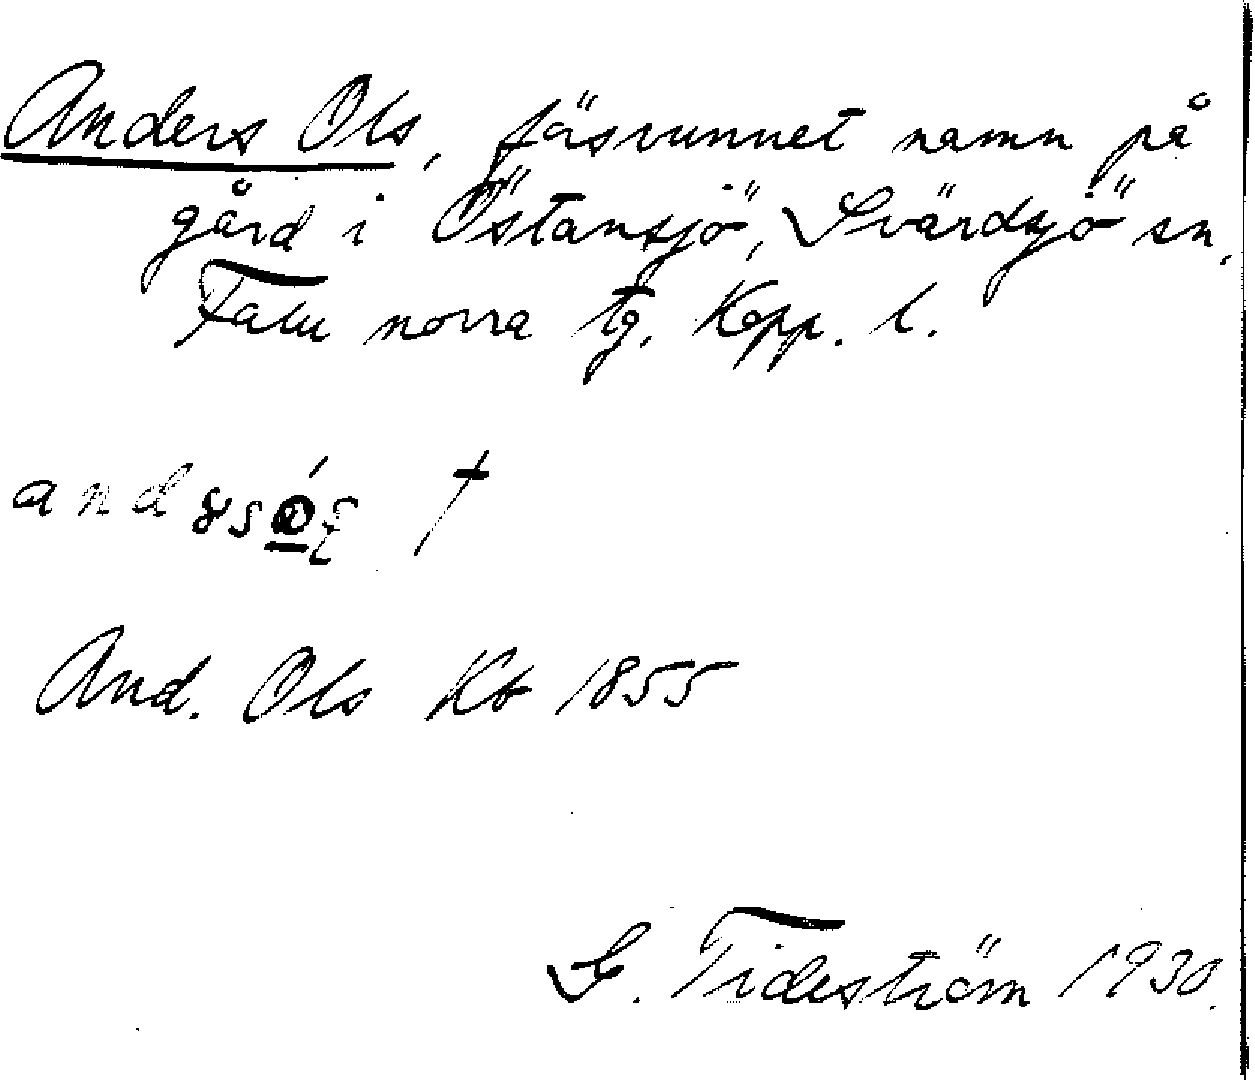 Anders Ols, försvunnet namn på
gård i Östansjö, Svärdsjö sn,
Falu norra tg, Kopp. l.
†
And. Ols Kb 1855
G. Tideström 1930.